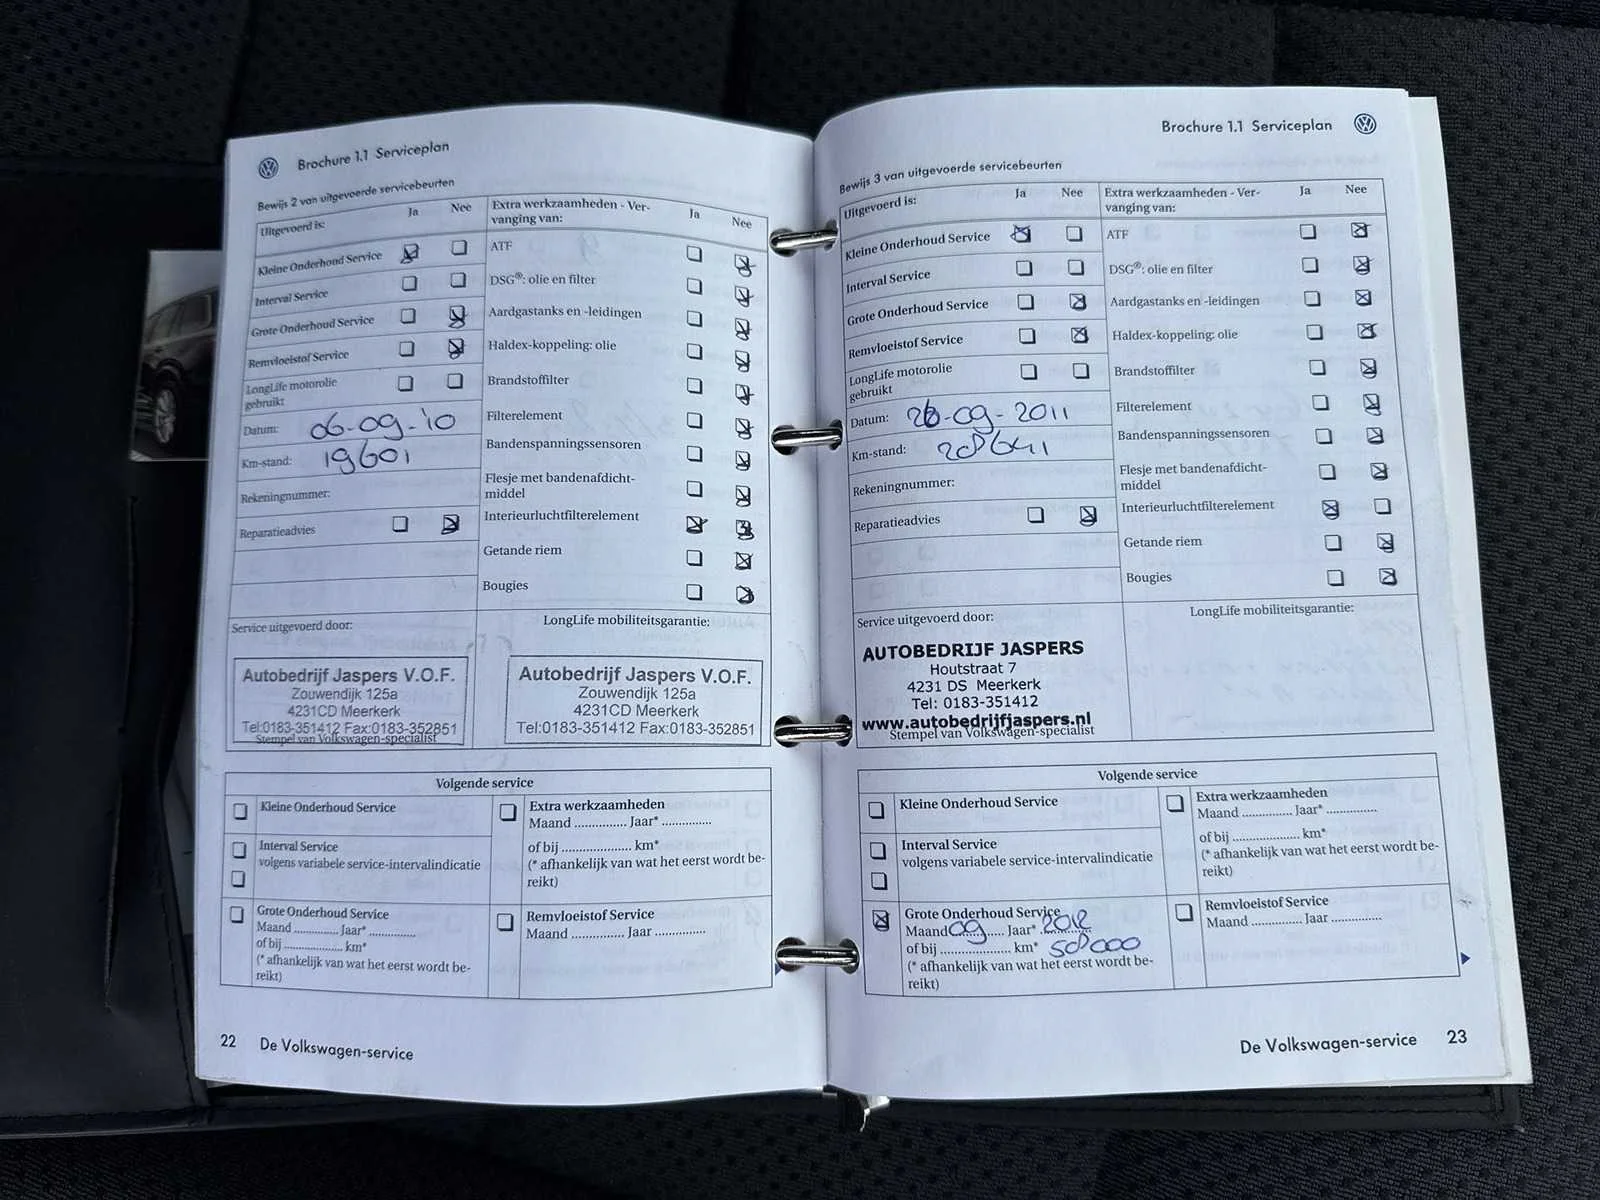 Brochure 1.1 Serviceplan
Bewijs 2 van uitgevoerde servicebeurten
Uitgevoerd is: Ja Nee
Kleine Onderhoud Service
Interval Service
Grote Onderhoud Service
Remvloeistof Service
LongLife motorolie
gebruikt
Datum: 06-09-10
Km-stand: 19601
Rekeningnummer:
Reparatieadvies
Extra werkzaamheden - Ver-
vanging van: Ja Nee
ATF
DSG®: olie en filter
Aardgastanks en -leidingen
Haldex-koppeling: olie
Brandstoffilter
Filterelement
Bandenspanningssensoren
Flesje met bandenafdicht-
middel
Interieurluchtfilterelement
Getande riem
Bougies
Service uitgevoerd door:
Autobedrijf Jaspers V.O.F.
Zouwendijk 125a
4231CD Meerkerk
Tel:0183-351412 Fax:0183-352851
Stempel van Volkswagen-specialist
LongLife mobiliteitsgarantie:
Autobedrijf Jaspers V.O.F.
Zouwendijk 125a
4231CD Meerkerk
Tel:0183-351412 Fax:0183-352851
Volgende service
Kleine Onderhoud Service
Interval Service
volgens variabele service-intervalindicatie
Grote Onderhoud Service
Maand .............. Jaar* ..............
of bij .................... km*
(* afhankelijk van wat het eerst wordt be-
reikt)
Extra werkzaamheden
Maand .............. Jaar* ..............
of bij .................... km*
(* afhankelijk van wat het eerst wordt be-
reikt)
Remvloeistof Service
Maand .............. Jaar ..............
22 De Volkswagen-service
Brochure 1.1 Serviceplan
Bewijs 3 van uitgevoerde servicebeurten
Uitgevoerd is: Ja Nee
Kleine Onderhoud Service
Interval Service
Grote Onderhoud Service
Remvloeistof Service
LongLife motorolie
gebruikt
Datum: 26-09-2011
Km-stand: 28641
Rekeningnummer:
Reparatieadvies
Extra werkzaamheden - Ver-
vanging van: Ja Nee
ATF
DSG®: olie en filter
Aardgastanks en -leidingen
Haldex-koppeling: olie
Brandstoffilter
Filterelement
Bandenspanningssensoren
Flesje met bandenafdicht-
middel
Interieurluchtfilterelement
Getande riem
Bougies
Service uitgevoerd door:
AUTOBEDRIJF JASPERS
Houtstraat 7
4231 DS Meerkerk
Tel: 0183-351412
www.autobedrijfjaspers.nl
Stempel van Volkswagen-specialist
LongLife mobiliteitsgarantie:
Volgende service
Kleine Onderhoud Service
Interval Service
volgens variabele service-intervalindicatie
Grote Onderhoud Service
Maand 09 ..... Jaar* 2012
of bij .................... km* 58000
(* afhankelijk van wat het eerst wordt be-
reikt)
Extra werkzaamheden
Maand .............. Jaar* ..............
of bij .................... km*
(* afhankelijk van wat het eerst wordt be-
reikt)
Remvloeistof Service
Maand .............. Jaar ..............
De Volkswagen-service 23